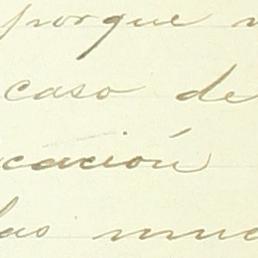 porque
caso de
cación
las muc